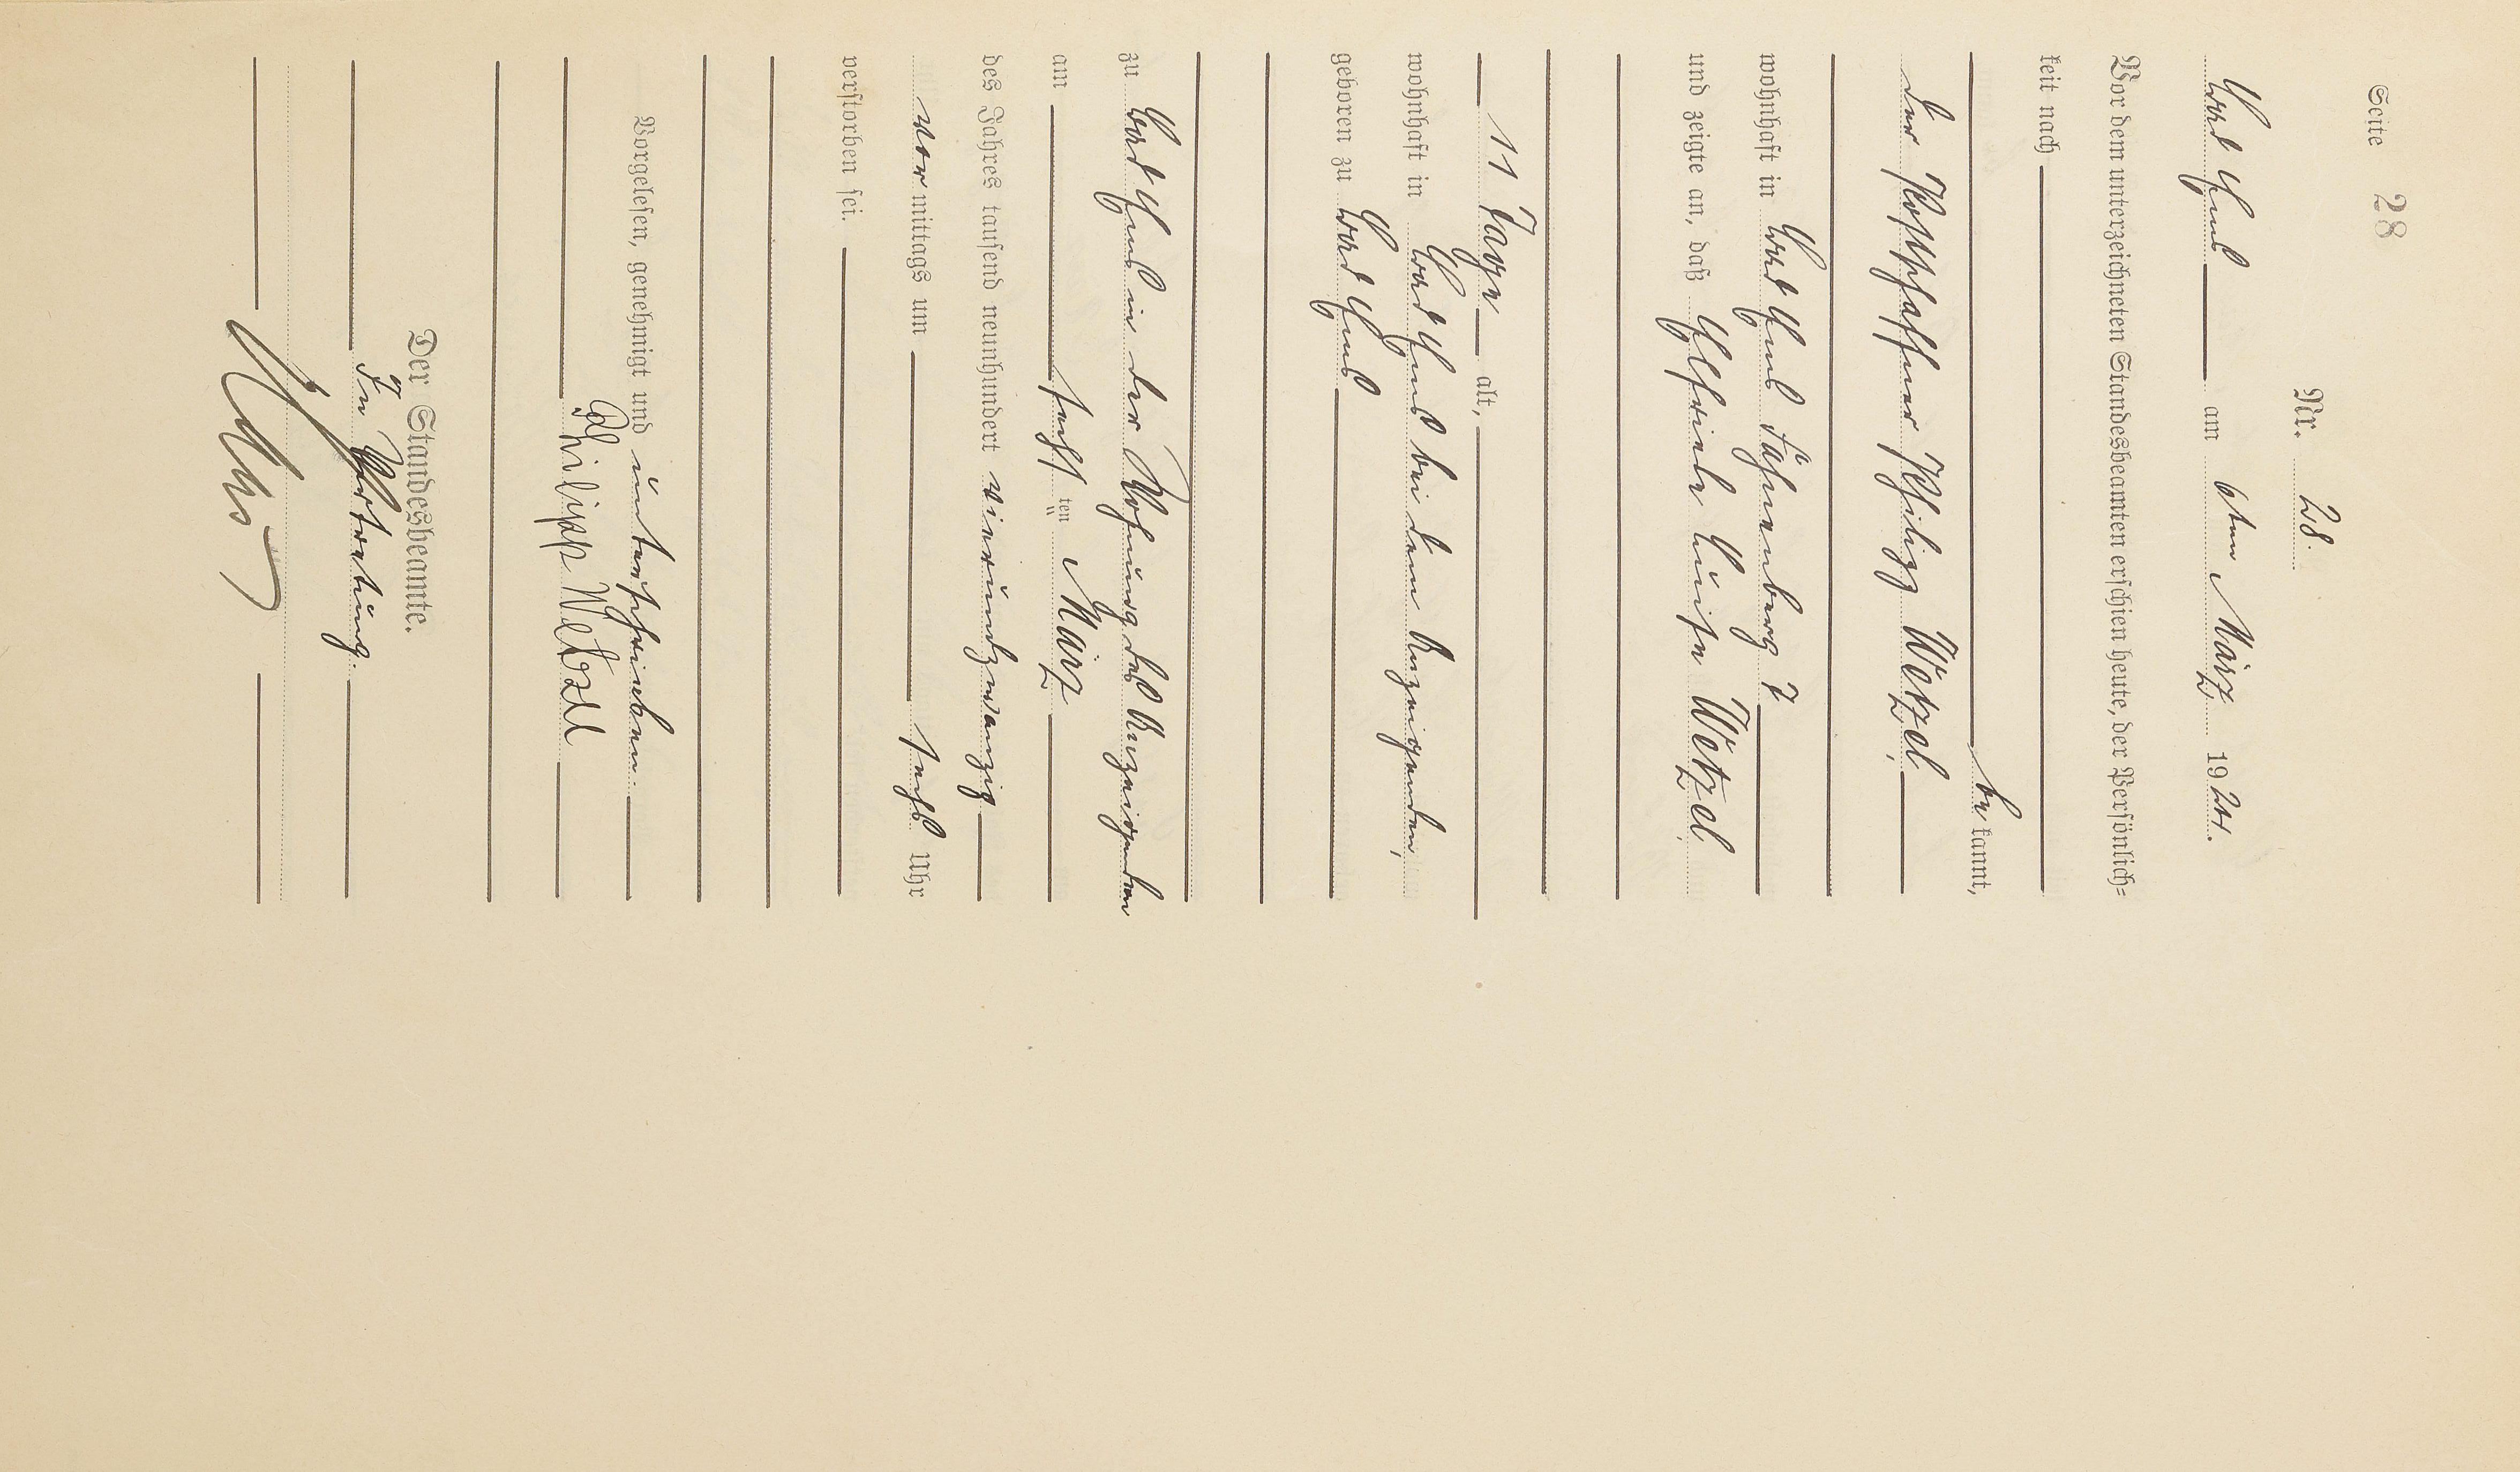 Seite 28
Nr. 28.
Bad Ems am 6ten März 1924.
Vor dem unterzeichneten Standesbeamten erschien heute, der Persönlich=
keit nach
bekannt,
der Postschaffner Philipp Wetzel,
wohnhaft in Bad Ems Fahnenberg 7
und zeigte an, daß Elfriede Luise Wetzel,
11 Tage alt,
wohnhaft in Bad Ems bei dem Anzeigenden,
geboren zu Bad Ems
zu Bad Ems in der Wohnung des Anzeigenden
am sechsten März
des Jahres tausend neunhundert vierundzwanzig
vormittags um sechs Uhr
verstorben sei.
Vorgelesen, genehmigt und unterschrieben.
Philipp Wetzel
Der Standesbeamte.
In Vertretung.